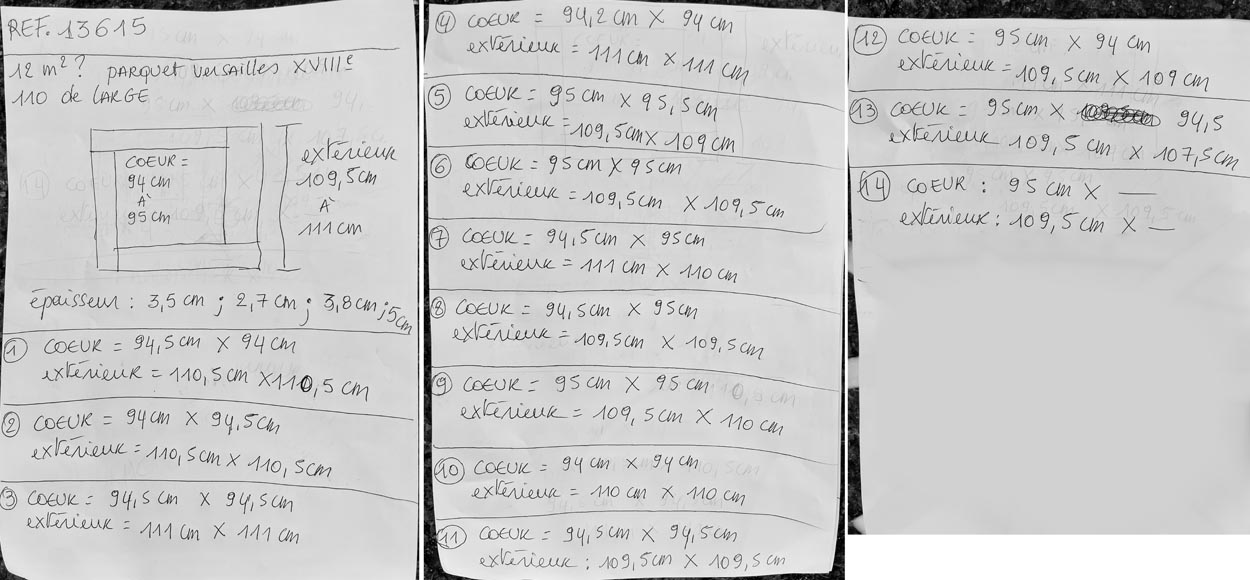 REF. 13615
12 m² ? PARQUET VERSAILLES XVIIIe
110 de LARGE
COEUR =
94 cm
À
95 cm
extérieur
109,5cm
À
111 cm
épaisseur : 3,5 cm ; 2,7 cm ; 3,8 cm ; 5 cm
1 COEUR = 94,5 cm X 94 cm
extérieur = 110,5 cm X 110,5 cm
2 COEUR = 94 cm X 94,5 cm
extérieur = 110,5 cm X 110,5 cm
3 COEUR = 94,5 cm X 94,5 cm
extérieur = 111 cm X 111 cm
4 COEUR = 94,2 cm X 94 cm
extérieur = 111 cm X 111 cm
5 COEUR = 95 cm X 95,5 cm
extérieur = 109,5 cm X 109 cm
6 COEUR = 95 cm X 95 cm
extérieur = 109,5 cm X 109,5 cm
7 COEUR = 94,5 cm X 95 cm
extérieur = 111 cm X 110 cm
8 COEUR = 94,5 cm X 95 cm
extérieur = 109,5 cm X 109,5 cm
9 COEUR = 95 cm X 95 cm
extérieur = 109,5 cm X 110 cm
10 COEUR = 94 cm X 94 cm
extérieur = 110 cm X 110 cm
11 COEUR = 94,5 cm X 94,5 cm
extérieur : 109,5 cm X 109,5 cm
12 COEUR = 95 cm X 94 cm
extérieur = 109,5 cm X 109 cm
13 COEUR = 95 cm X 94,5
extérieur 109,5 cm X 107,5 cm
14 COEUR : 95 cm X —
extérieur : 109,5 cm X —